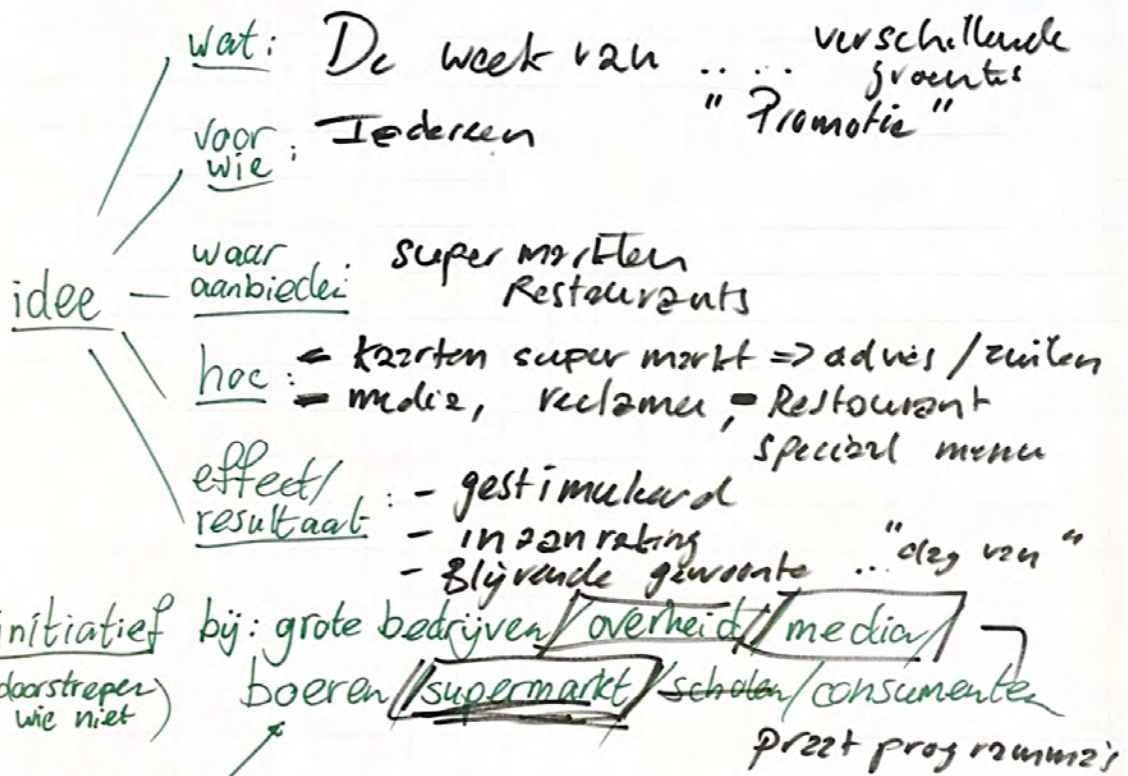 wat: De week van .... verschillende groentes
"Promotie"
voor wie: Iedereen
idee
waar aanbieden: super markten
Restaurants
hoe: - kaarten super markt => advies / zuilen
- media, reclame, - Restaurant
speciaal menu
effect/
resultaat: - gestimuleerd
- in aanraking
- Blijvende gewoonte ... "dag van"
initiatief bij: grote bedrijven / overheid / media /
(doorstrepen wie niet) boeren / supermarkt / scholen / consumenten
praat programma's